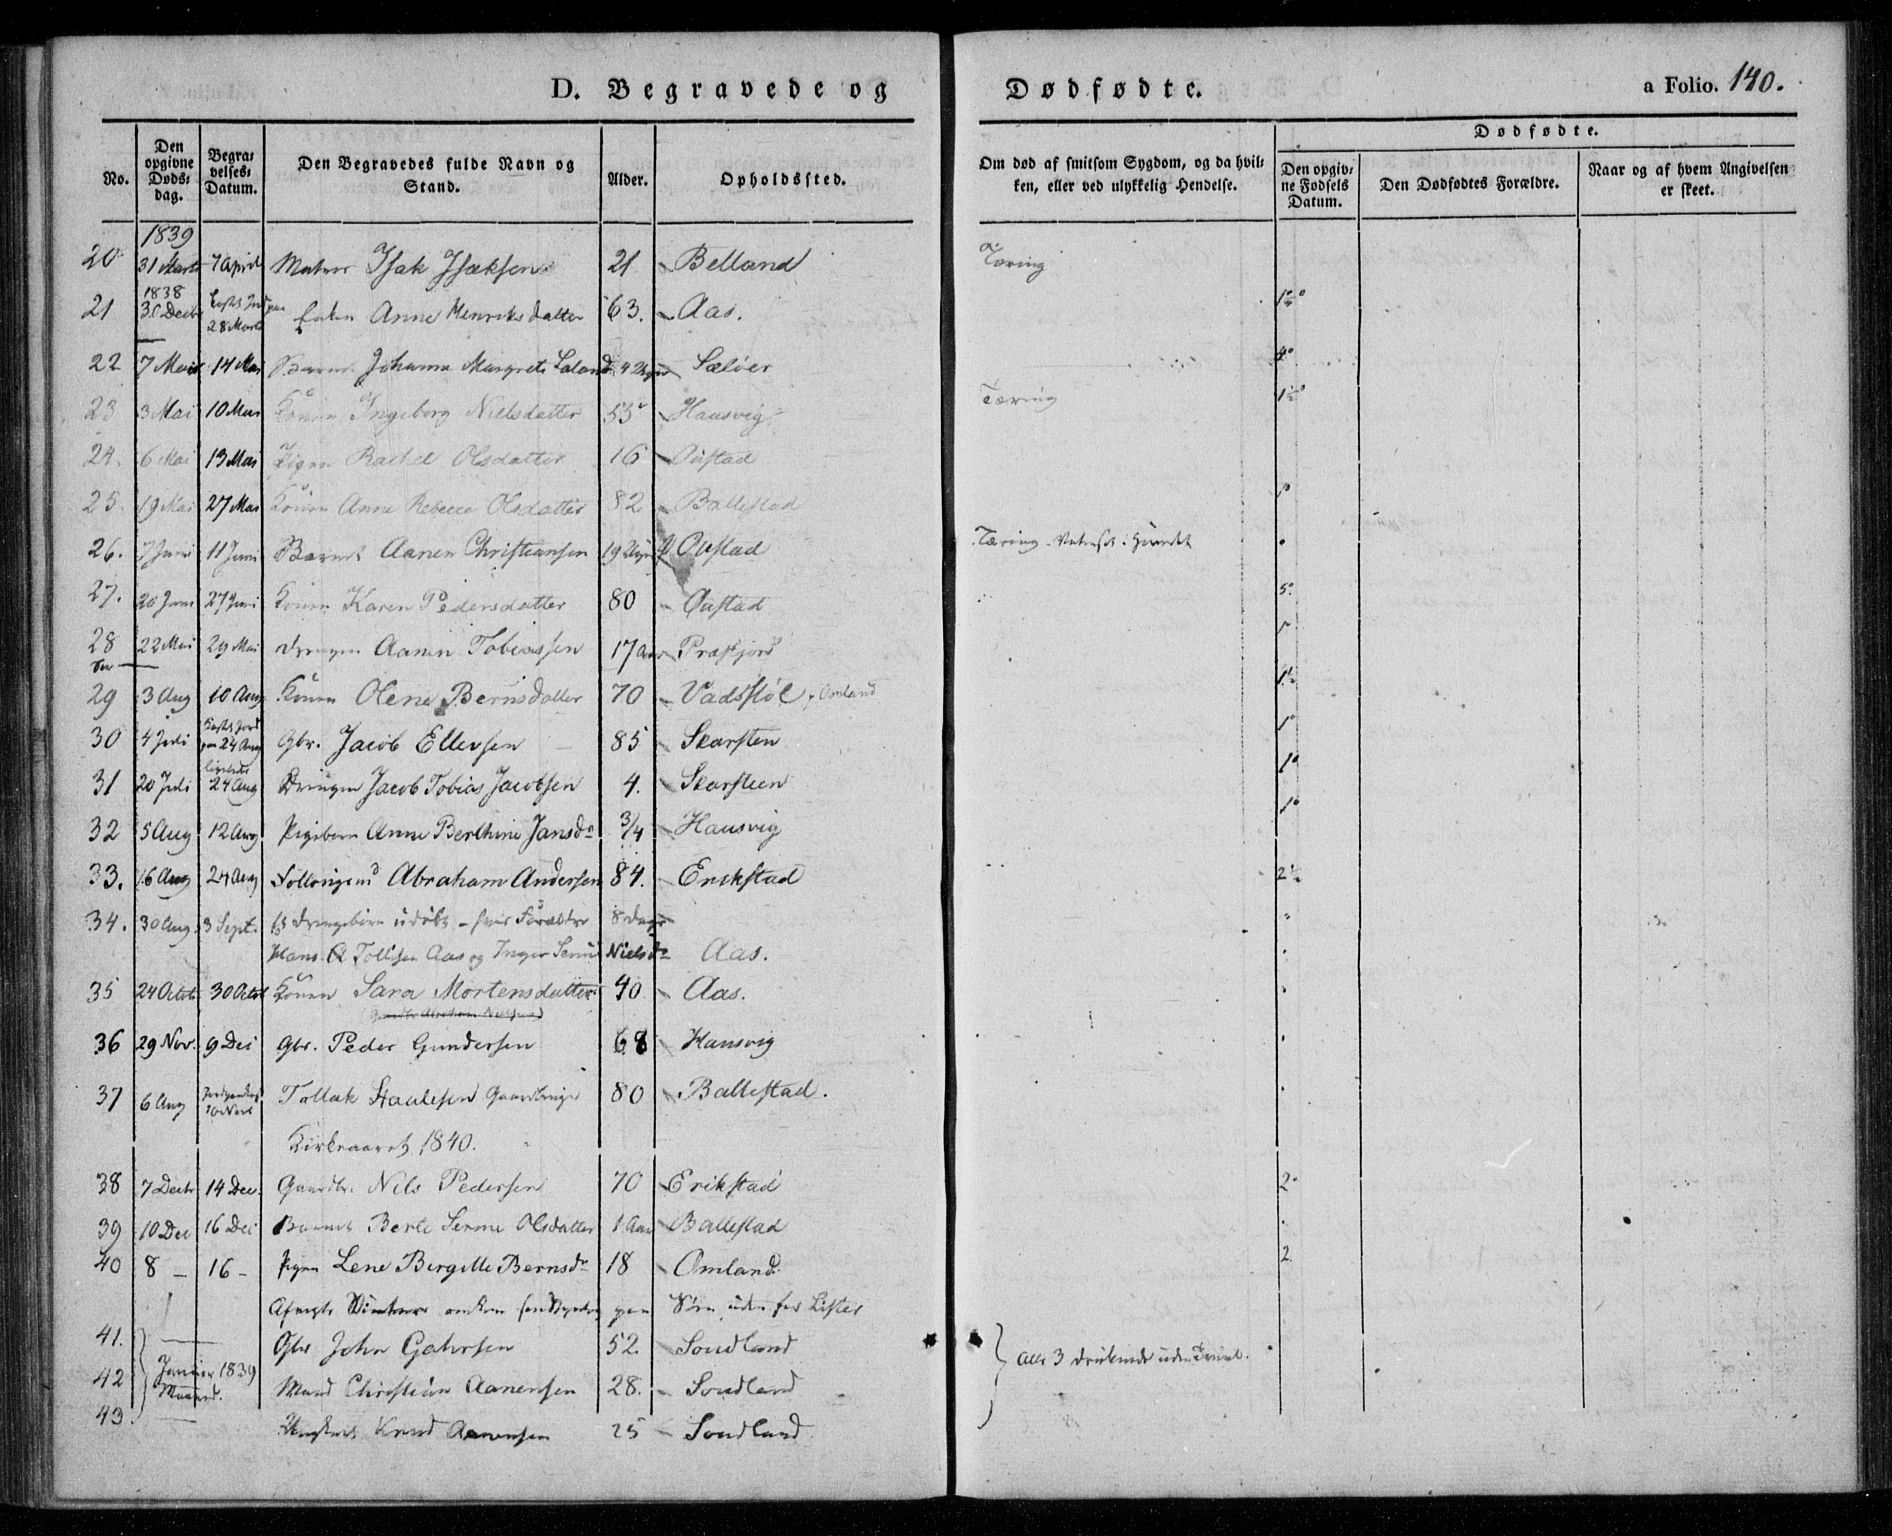 D. Begravede og Dødfødte. a Folio. 140.
No. Den opgivne Døds-dag. Begra-velses-Datum. Den Begravedes fulde Navn og Stand. Alder. Opholdssted. Om død af smitsom Sygdom, og da hvil-ken, eller ved ulykkelig Hendelse. Dødfødte. Den opgiv-ne Fødsels Datum. Den Dødfødtes Forældre. Naar og af hvem Angivelsen er skeet.
1839
20 31 Marts 7 April Isak Isaksen 21 Belland Tæring
1838
21 Decbr 28 Marts Anne Henriksdatter 63. Aas. 1½
22 7 Mai 14 Mai Barnet Johanne Margrete 4 Uger Seløer 4
23 3 Mai 10 Mai Konen Ingeborg Nielsdatter 55 Hausvig Tæring
24. 6 Mai 13 Mai Pigen Rachel Olsdatter 16 Oustad
25. 19 Mai 27 Mai Konen Anne Rebecca Olsdatter 82 Ballestad
26. 7 Juni 11 Juni Barnet Aanen Christiansen 19 Uger Oustad Tæring
27. 20 Juni 27 Juni Konen Karen Pedersdatter 80 Oustad 5
28 22 Mai 29 Mai Drengen Aanen Tobiassen 17 Aar Præstjord
29 3 Aug 10 Aug Konen Olene Berntsdatter 70 Vadstøl, Omland
30 4 Juli 24 Aug Gbr. Jacob Ellevsen 85 Skarsten 1
31 20 Juli 24 Aug Drengen Jacob Tobias Jacobsen 4. Skarsteen 1
32 5 Aug 12 Aug Pigebarn Anne Berthine Jansdr 3/4 Hausvig 1
33. 16 Aug 24 Aug Abraham Andersen 84. Erikstad 2½
34. 30 Aug. 3 Sept. Drengebarn udøbt - hvis Forældre 8 Dage
Hans Tollisen Aas og Inger Nielsdr Aas.
35 24 Octob 30 Octob Konen Sara Mortensdatter 40 Aas.
36 29 Nov. 9 Dec Gbr. Peder Gundersen 68 Hausvig
37 6 Aug Tollak Staalesen 80 Ballestad.
Kirkeaaret 1840.
38 7 Decbr 14 Dec. Gaardbr. Nils Pedersen 70 Erikstad 2
39 10 Dec 16 Dec Barnet Berte Serine Olsdatter 1 Aar Ballestad
40 8 - 16 - Pigen Lene Birgitte Berntsdr 18 Omland 2
Afvigte Vinter omkom paa Søen uden for Lister
41. Gbr John Gabrsen 52. Sondland
42 Januar 1839 Maaned. Mand Christian Aanensen 28. Sondland alle 3 druknede
43 Knud Aanensen 25 Sondland